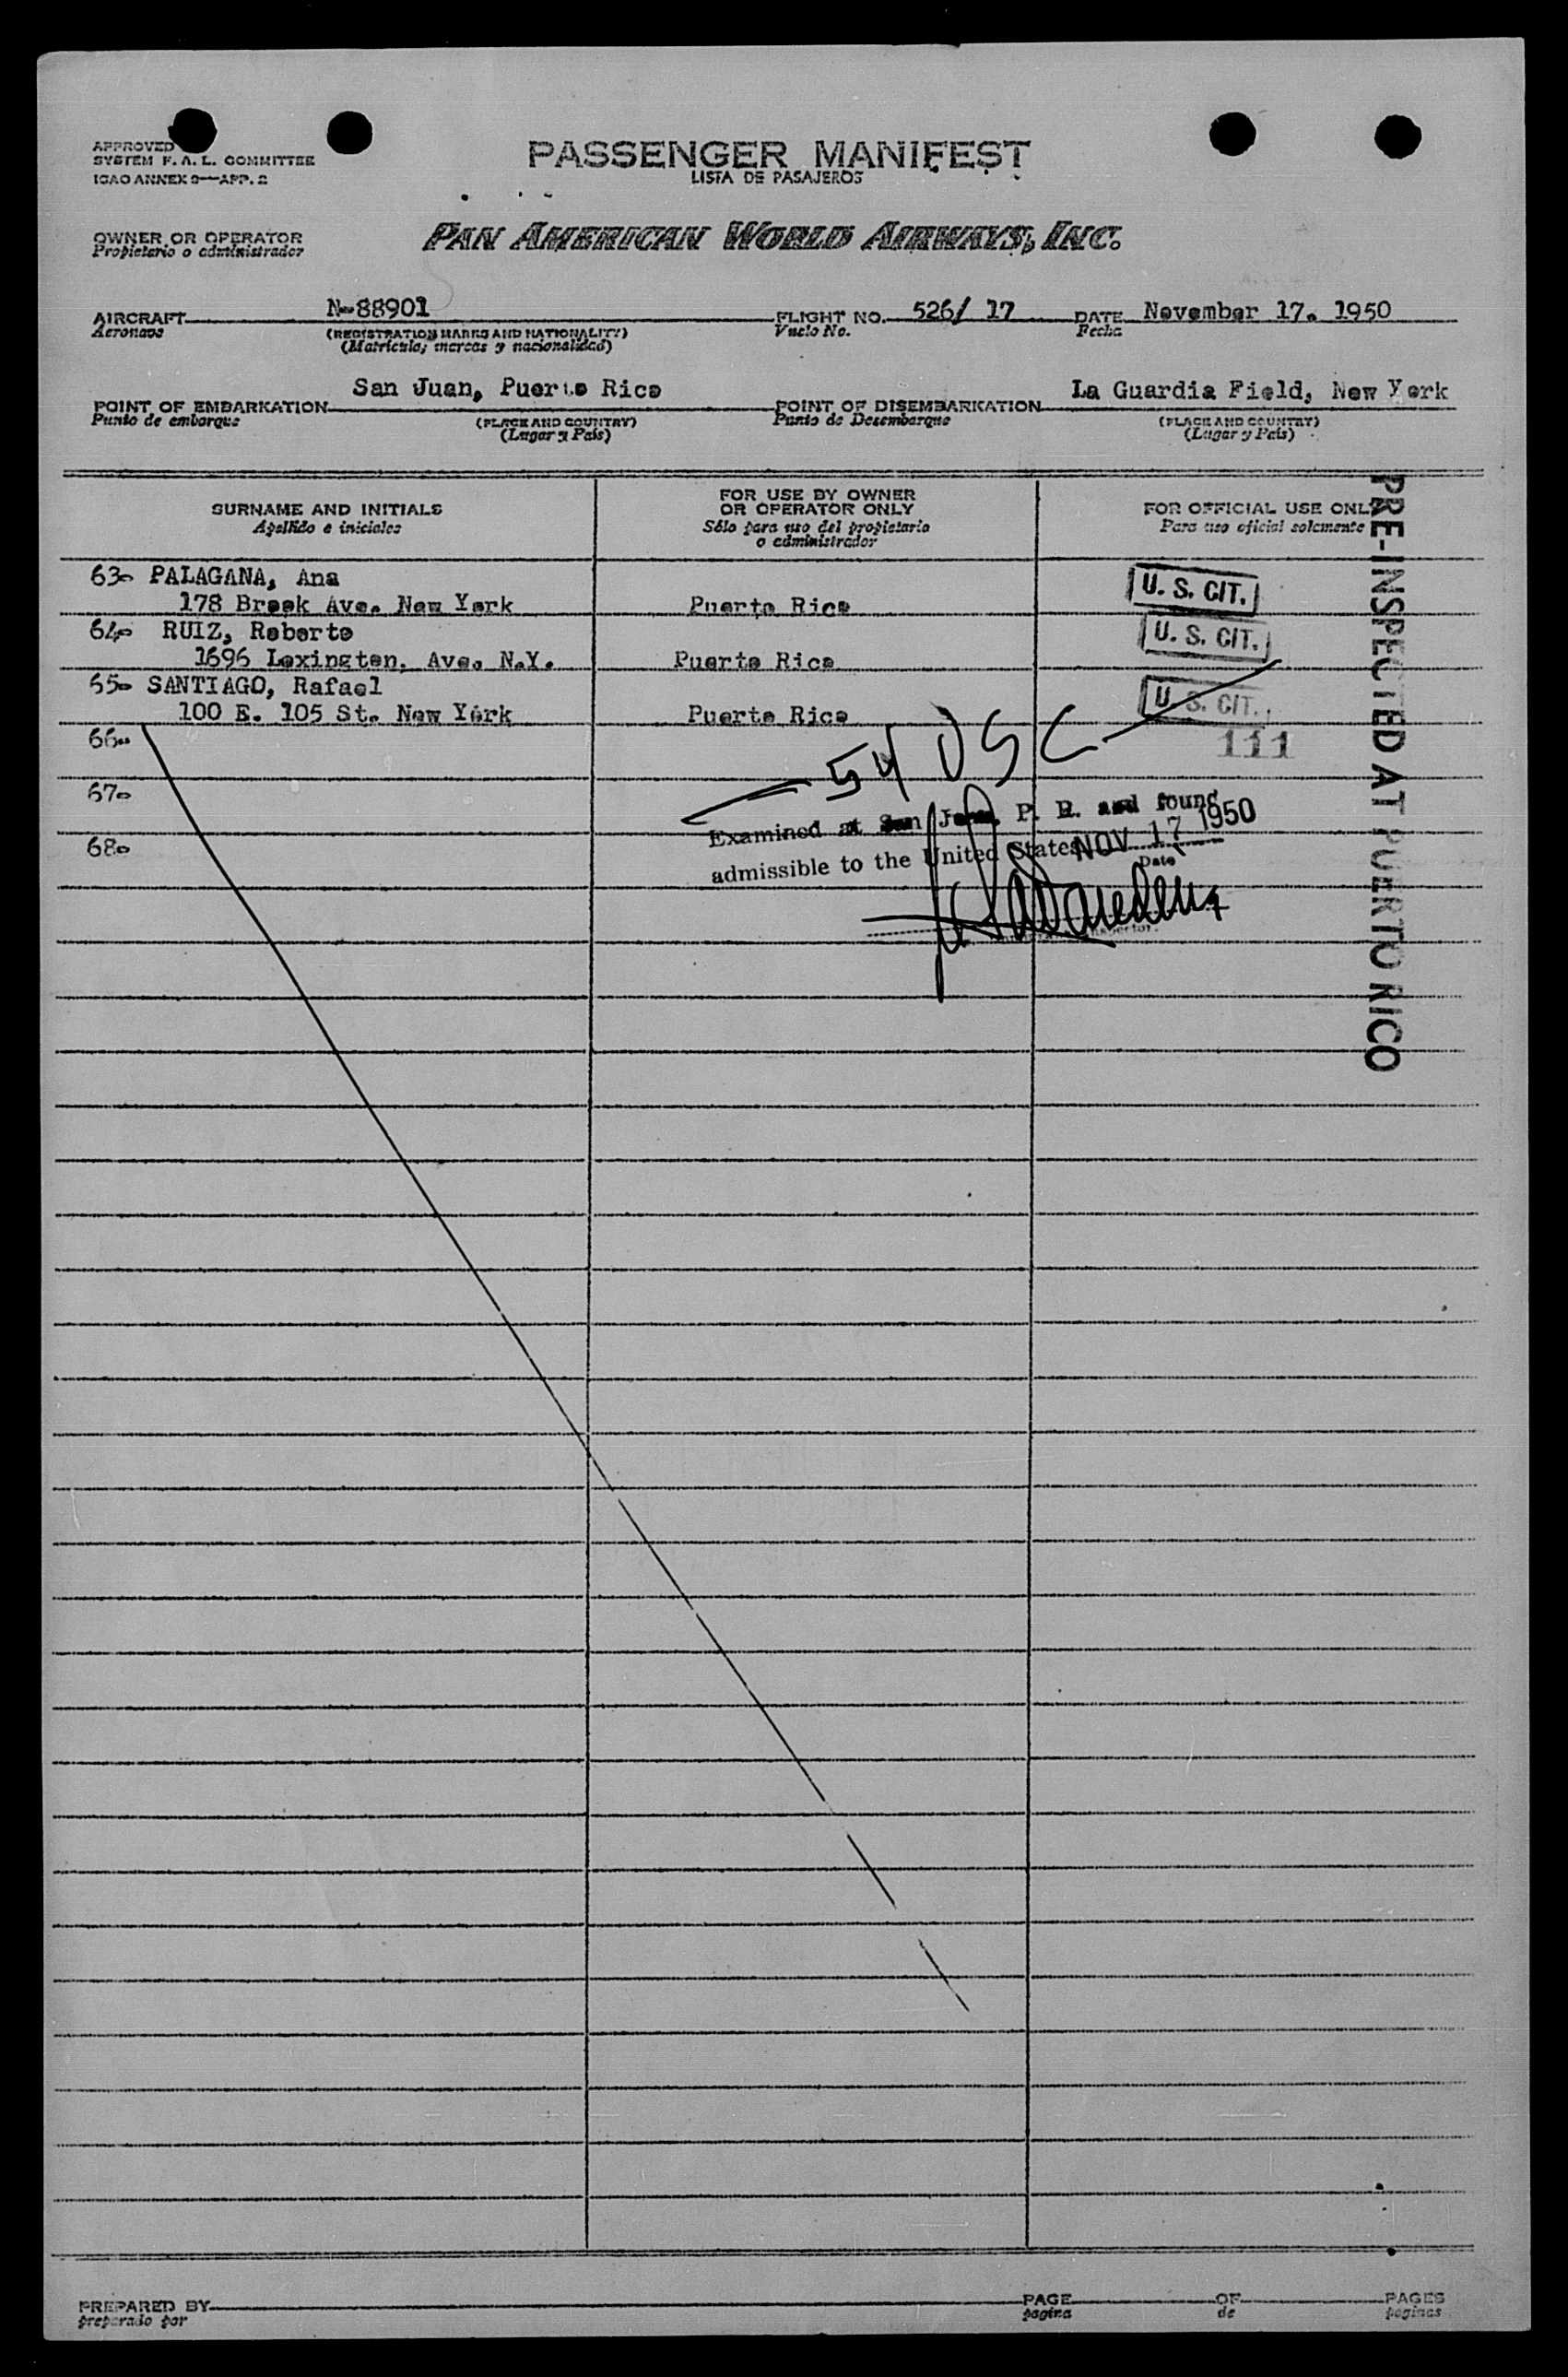 APPROVED
SYSTEM F. A. L. COMMITTEE
ICAO ANNEX 9—APP. 2
PASSENGER MANIFEST
LISTA DE PASAJEROS
OWNER OR OPERATOR
Propietario o administrador
PAN AMERICAN WORLD AIRWAYS, INC.
AIRCRAFT N-88901 FLIGHT NO. 526/ 17 DATE November 17. 1950
Aeronave (REGISTRATION MARKS AND NATIONALITY) Vuelo No. Fecha
(Matrícula, marcas y nacionalidad)
POINT OF EMBARKATION San Juan, Puerto Rico POINT OF DISEMBARKATION La Guardia Field, New York
Punto de embarque (PLACE AND COUNTRY) Punto de Desembarque (PLACE AND COUNTRY)
(Lugar y País) (Lugar y País)
SURNAME AND INITIALS FOR USE BY OWNER OR OPERATOR ONLY FOR OFFICIAL USE ONLY
Apellido e iniciales Sólo para uso del propietario o administrador Para uso oficial solamente
63- PALAGANA, Ana U. S. CIT.
178 Brook Ave. New York Puerto Rico
64- RUIZ, Roberto U. S. CIT.
1696 Lexington, Ave. N.Y. Puerto Rico
65- SANTIAGO, Rafael U. S. CIT.
100 E. 105 St. New York Puerto Rico
66- 111
54 USC
67-
Examined at San Juan, P. R. and found
68-
admissible to the United States NOV 17 1950
Date
Inspector.
PRE-INSPECTED AT PUERTO RICO
PREPARED BY PAGE OF PAGES
preparado por pagina de paginas